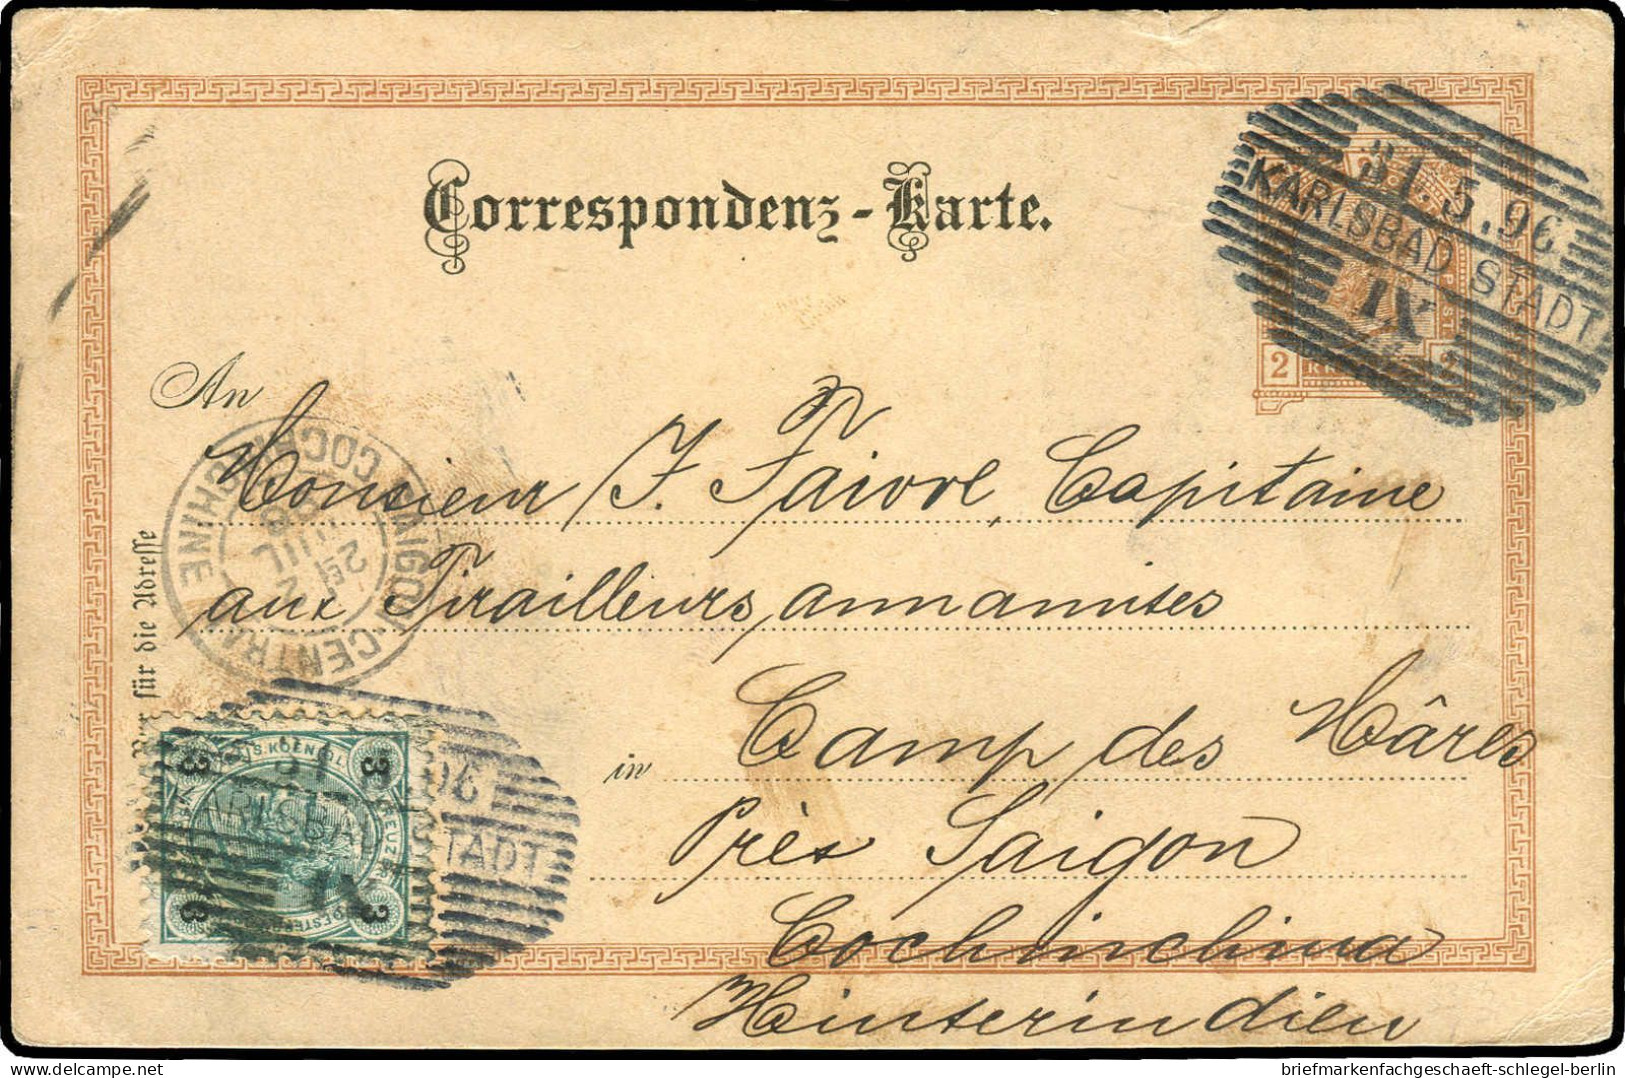 Correspondenz-Karte.
31.5.96
KARLSBAD STADT
IX
2
An
Monsieur J. Faivre, Capitaine
aux Tirailleurs annamites
in Camp des Mâres
Près Saigon
Cochinchina
Hinterindien
Nur für die Adresse
SAIGON-CENTRAL
COCHINCHINE
2E
2
JUIL
96
3 3
3 3
KARLSBAD STADT
IX
briefmarkenfachgeschaeft-schlegel-berlin